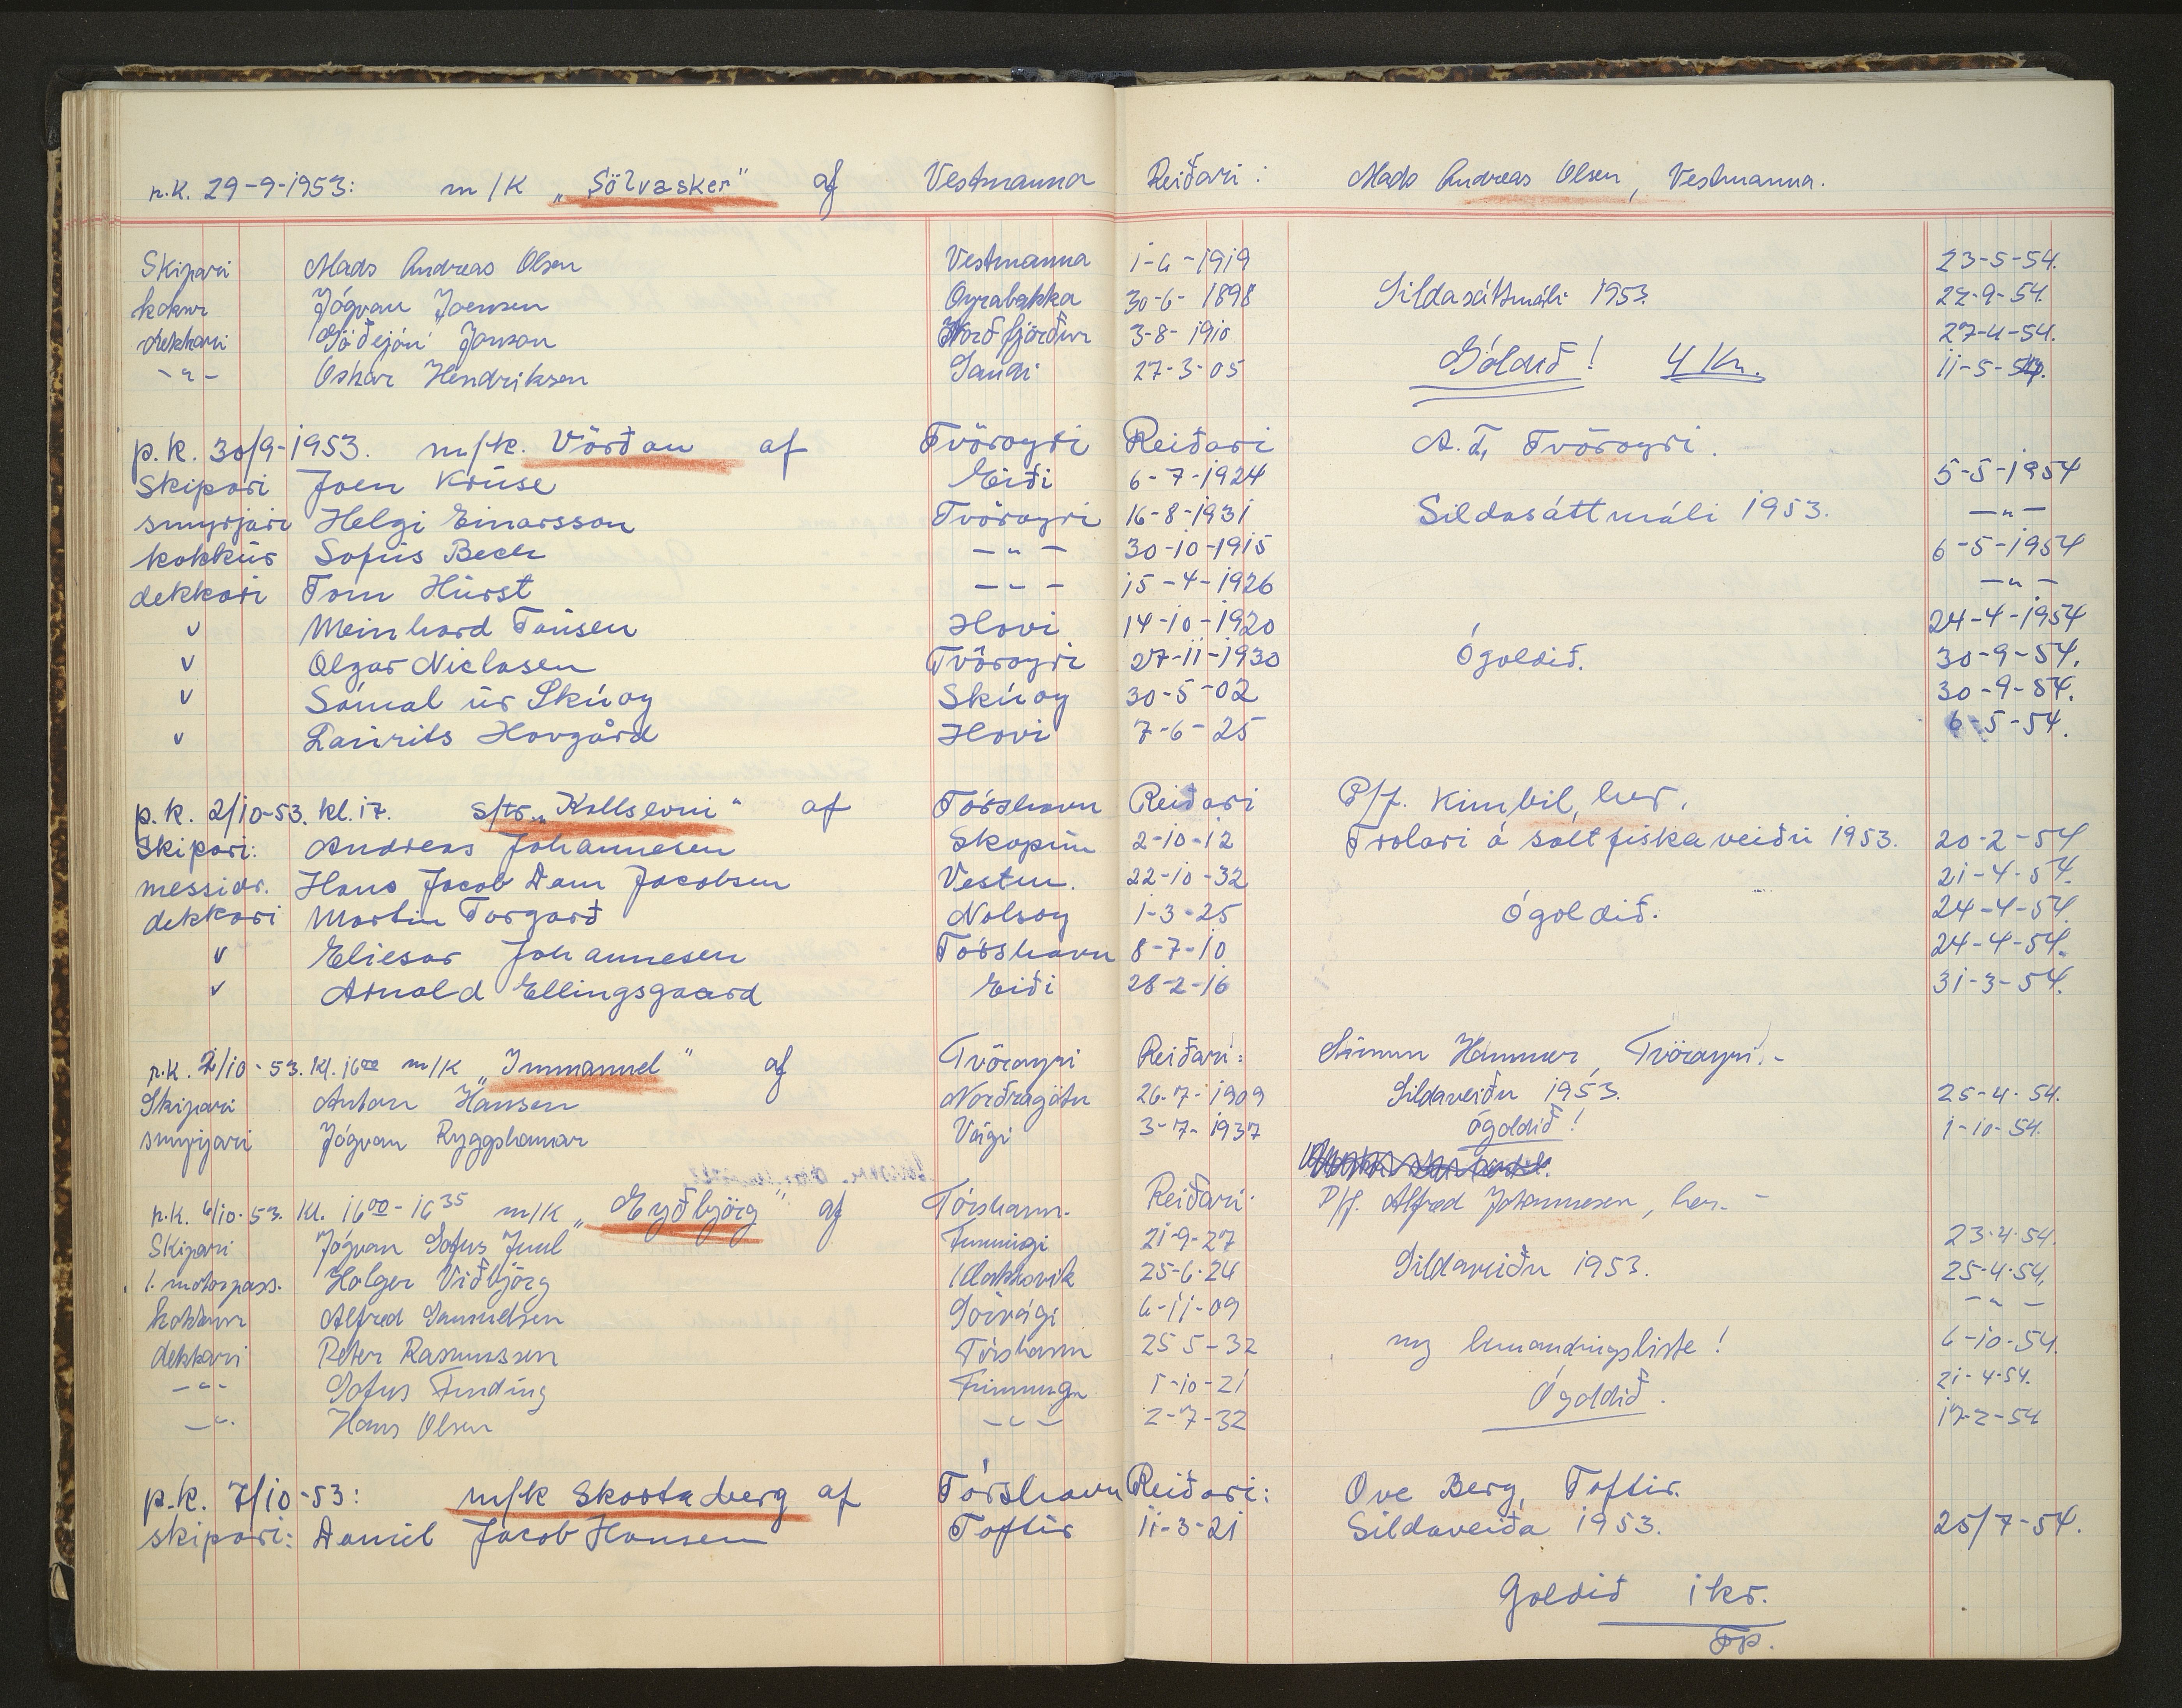 p.k. 29-9-1953: m/k „Sölvasker" af Vestmanna Reiðari: Mads Andreas Olsen, Vestmanna.
Skipari Mads Andreas Olsen Vestmanna 1-6-1919 23-5-54.
kokur Jógvan Joensen Oyrabakka 30-6-1898 Sildasáttmáli 1953. 22-9-54.
dekkari Janson Norðfjørður 3-8-1910 27-4-54.
-"- Oskar Hendriksen Sandi 27-3-05 Góldið! 4 Kr. 11-5-54.
p.k. 30/9-1953. m/k. Vörðan af Tvöroyri Reiðari A.T, Tvöroyri.
Skipari Joen Krüse Eiði 6-7-1924 5-5-1954
smyrjari Helgi Einarsson Tvöroyri 16-8-1931 Sildasáttmáli 1953. -"-
kokkur Sofus Bech -"- 30-10-1915 6-5-1954
dekkari Tom Hürst -"- 15-4-1926 -"-
v Meinhard Tausen Hovi 14-10-1920 24-4-1954
v Olgar Niclasen Tvöroyri 27-11-1930 Ógoldið. 30-9-54.
v Sámal úr Skúoy Skúoy 30-5-02 30-9-54.
v Laurits Hovgård Hovi 7-6-25 6-5-54.
p.k. 2/10-53. kl. 17. s/tr. „Kallsevni" af Tórshavn Reiðari P/f. Kimbil, her.
Skipari: Andreas Johannesen Skopun 2-10-12 Trolari á saltfiskaveiðu 1953. 20-2-54
messidr. Hans Jacob Dam Jacobsen Vestm. 22-10-32 21-4-54.
dekkari Martin Torgarð Nolsoy 1-3-25 Ógoldið. 24-4-54.
v Eliesar Johannesen Tórshavn 8-7-10 24-4-54.
v Arnold Ellingsgaard Eiði 28-2-16 31-3-54.
p.k. 2/10-53. Kl. 16⁰⁰ m/k „Immanuel" af Tvöroyri Reiðari: Simun Hammer, Tvöroyri.-
Skipari Anton Hansen Norðragötu 26-7-1909 Sildaveiðu 1953. 25-4-54.
smyrjari Jógvan Ryggshamar Vági 3-7-1937 ógoldið! 1-10-54.
p.k. 6/10-53. Kl. 16⁰⁰-16³⁵ m/k „Eyðbjörg" af Tórshavn. Reiðari: P/f. Alfred Johannesen, her.-
Skipari Jógvan Sofus Juul Funningi 21-9-27 23-4-54.
1. motorpass. Holger Viðbjörg Klakksvik 25-6-24 Sildaveiðu 1953. 25-4-54.
kokkur Alfred Samuelsen Sörvági 6-11-09 -"-
dekkari Peter Rasmussen Tórshavn 25 5-32 ny bemandingsliste! 6-10-54.
-"- Sofus Funding Funningi 1-10-21 Ógoldið. 21-4-54.
-"- Hans Olsen -"- 2-7-32 17-2-54
p.k. 7/10-53: m/k Skorta berg af Tórshavn Reiðari: Ove Berg, Toftir.
skipari: Daniel Jacob Hansen Toftir 11-3-21 Sildaveiða 1953. 25/7-54.
Goldið 1 kr.